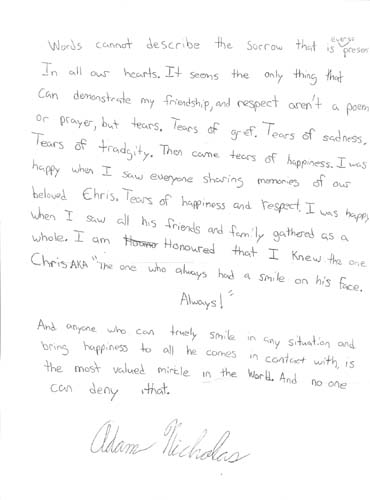 Words cannot describe the sorrow that is ever so present
In all our hearts. It seems the only thing that
can demonstrate my friendship, and respect aren't a poem
or prayer, but tears. Tears of grief. Tears of sadness.
Tears of tradgity. Then came tears of happiness. I was
happy when I saw everyone sharing memories of our
beloved Chris. Tears of happiness and respect. I was happy
when I saw all his friends and family gathered as a
whole. I am Honoured that I Knew the one
Chris AKA "The one who always had a smile on his face.
Always!"
And anyone who can truely smile in any situation and
bring happiness to all he comes in contact with, is
the most valued miricle in the World. And no one
can deny that.
Adam Nicholas